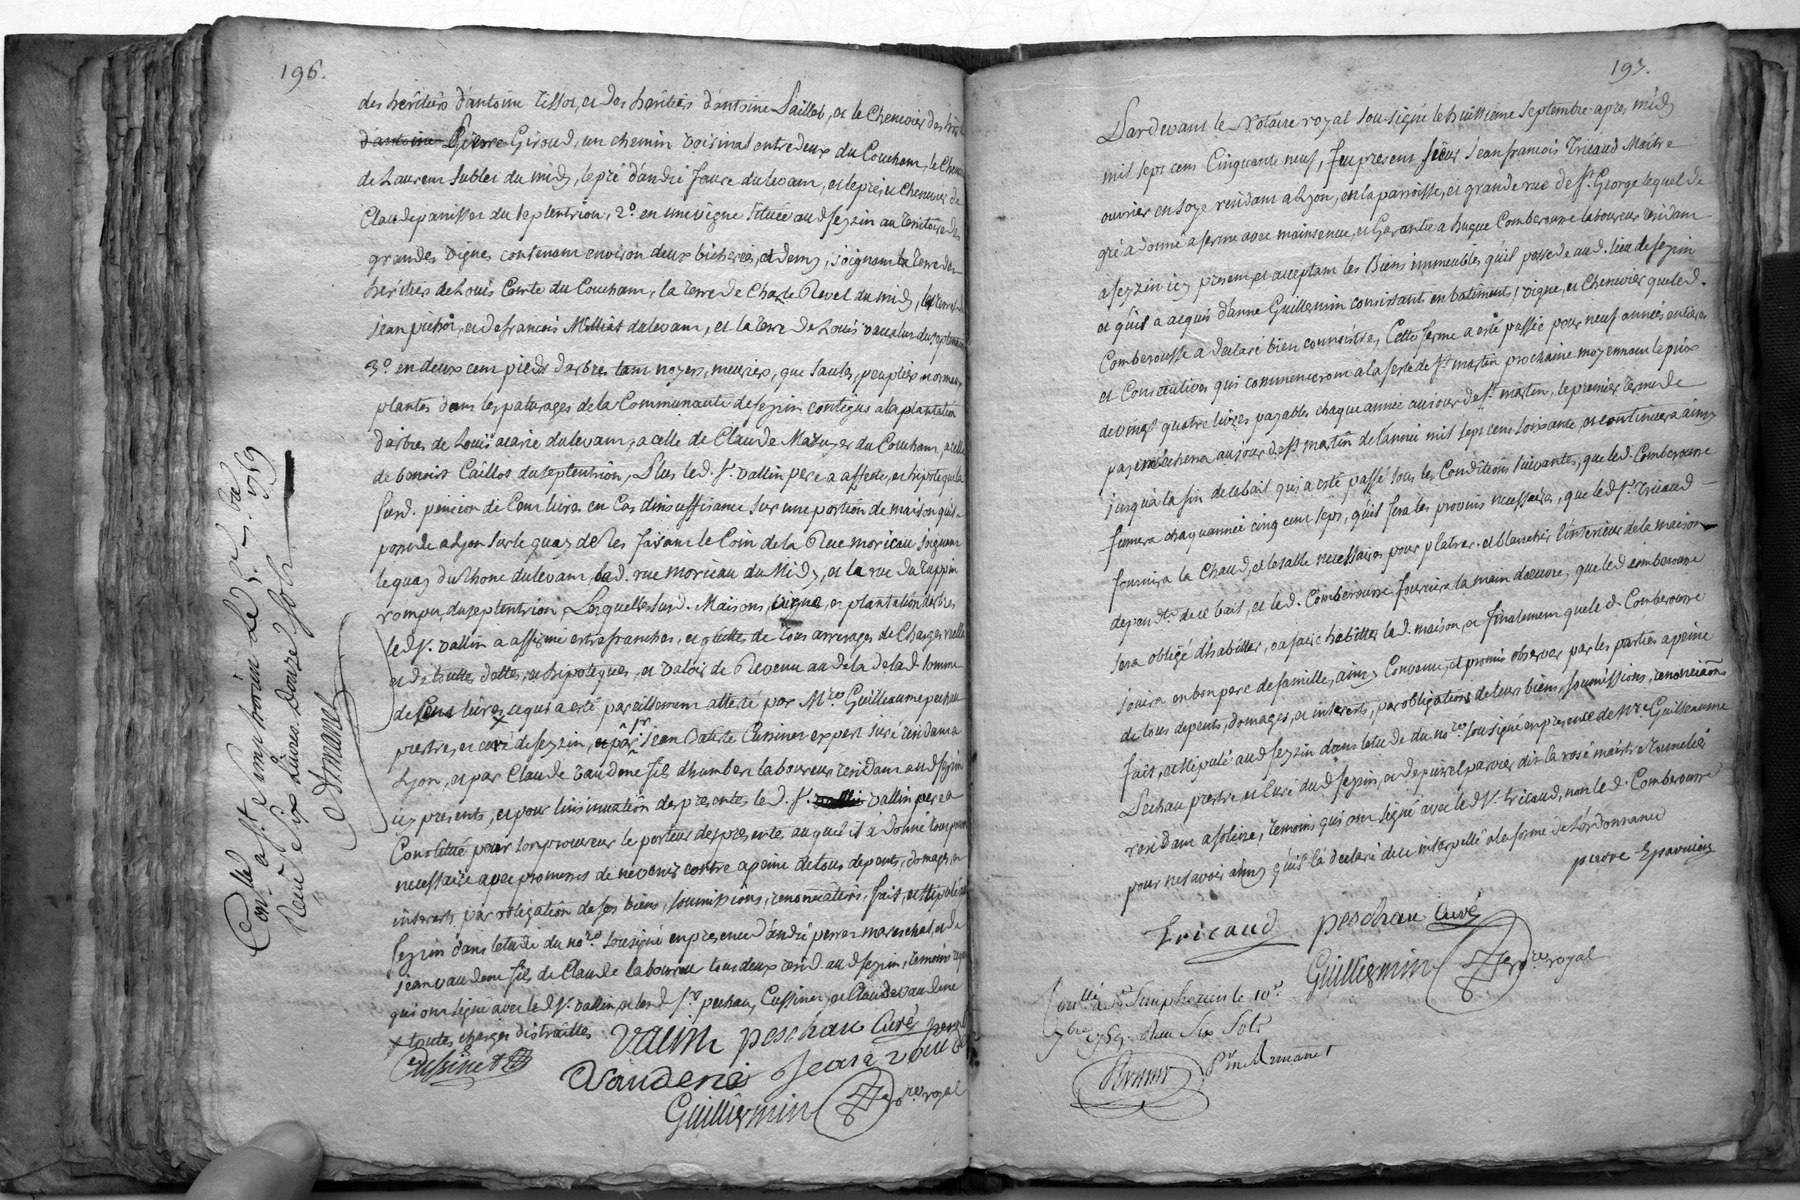 196.
des héritiers d'antoine tissot, et des héritiers d'antoine Paillet, et le Chenevier des
d'antoine Pierre Giroud, un chemin voisinal entre deux du Couchant, le
de Laurent Sublet du midy, le pré d'andré faure du levant, et le pré, et Chenevier de
Claude panisset du septentrion, 2°. en une vigne située aud seyzin au territoire des
grandes vignes contenant environ deux bicherées, et demy, joignant la terre des
héritiers de Louis Comte du Couchant, la terre de Charle Revel du midy, les terres de
jean pichot, et de francois Milliat du levant, et la terre de Louis du septentrion
3°. en deux cent pieds d'arbres tant noyers, meuriers, que saules, peupliers
plantés dans les paturages de la Communauté de seyzin contigus a la plantation
d'arbres de Louis acarie du levant, a celle de Claude Mazuyer du Couchant, a celle
de benoist Caillot du septentrion, Plus le d. sr. vallin pere a affecté, et hipotequé la
susd. pension de Cent livres en Cas d'insuffisance sur une portion de maison qu'il
possede a Lyon sur le quay de Res faisant le Coin de la Rue moricau joignant
le quay du Rhone du levant, lad. rue moricau du Midy, et la rue du Puppin
rompu, du septentrion, Lesquelles susd. Maisons, vigne, et plantation d'arbres
le d sr. vallin a affirmé estre franches, et quittes de tous arrerages de Charges reelles
et de toutes dettes, et hipoteques, et valoir de Revenu au dela de la d. somme
de Cent livres, ce qui a esté pareillement attesté par Mre. Guilleaume pechau
prestre, et curé de seyzin, et par sr. jean Batiste Cussinet expert juré residant a
Lyon, et par Claude Vaudene fils d'humbert laboureur residant aud seyzin
icy presents, et pour l'insinuation des presentes le d. sr. vallin pere a
Constitué pour son procureur le porteur des presentes auquel il a donné tout pouvoir
necessaire avec promesses de ne venir contre a peine de tous depents, domages, et
interests par obligation de ses biens, soumissions, renonciations, fait, et stipulé aud
seyzin dans letude du nore. sousigné en presence d'andré perret mareschal, et de
jean vaudene fils de Claude laboureur tous deux resid. aud seyzin, temoins
qui ont signé avec le d sr. vallin, et les d srs. pechau, Cussinet, et Claude vaudene
x toutes charges distraittes
Vallin peschau Curé
Cussinet
Vaudene Jean
Guilliermin nore royal
Con.llé a st. simphorien le
Reçu Six Livres Douze sols
Dmanet
197.
Pardevant le Notaire royal sousigné le huitième septembre apres midy
mil sept cent Cinquante neuf, fut present sieur Jean francois Tricaud Maitre
ouvrier en soye residant a Lyon, en la parroisse, et grande rue de st. George lequel de
gré a donné a ferme avec maintenue, et Garantie a hugue Comberousse laboureur residant
a seyzin icy present et acceptant les Biens immeubles qu'il possede aud. lieu de seyzin
et qu'il a acquis d'anne Guillermin consistant en batiments, vigne, et Chenevier que le d.
Comberousse a declaré bien connoistre, Cette ferme a esté passée pour neuf années entières
et Consecutives qui commenceront a la feste de st. martin prochaine moyennant le prix
de vingt quatre livres payables chaque année au jour de st. martin, le premier terme de
payem. échera au jour de st martin de l'année mil sept cent soixante, et continuera ainsy
jusqu'a la fin de ce bail qui a esté passé sous les Conditions suivantes, que le d. Comberousse
fumera chaqu'année cinq cent seps, qu'il fera les provins necessaires, que le d sr. Tricaud
fournira la Chaud, et le sable necessaires pour platrer, et blanchir l'interieur de la maison
dependte. de ce bail, et le d. Comberousse fournira la main d'oeuvre, que le d Comberousse
sera obligé d'habitter, ou faire habitter la d. maison, et finalement que le d. Comberousse
jouira en bon pere de famille, ainsy Convenu, et promis observer par les parties a peine
de tous depents, domages, et interests, par obligations de leurs biens, soumissions, renonciaons
fait, et stipulé aud seyzin dans letude du nore. sousigné en presence de Mre Guilleaume
Pechau prestre, et Curé du d seyzin, et de pierre dit la rosé maistre
residant a solaise, temoins qui ont signé avec le d sr. tricaud, non le d. Comberousse
pour ne savoir ainsy qu'il la declaré de ce interpellé a la forme de l'ordonnance
pierre
Tricaud peschau Curé
Guilliermin nore royal
Con.llé a St. Simphorien le 10e.
7bre 1759. Reçu Six Sols
Pr m Armanet